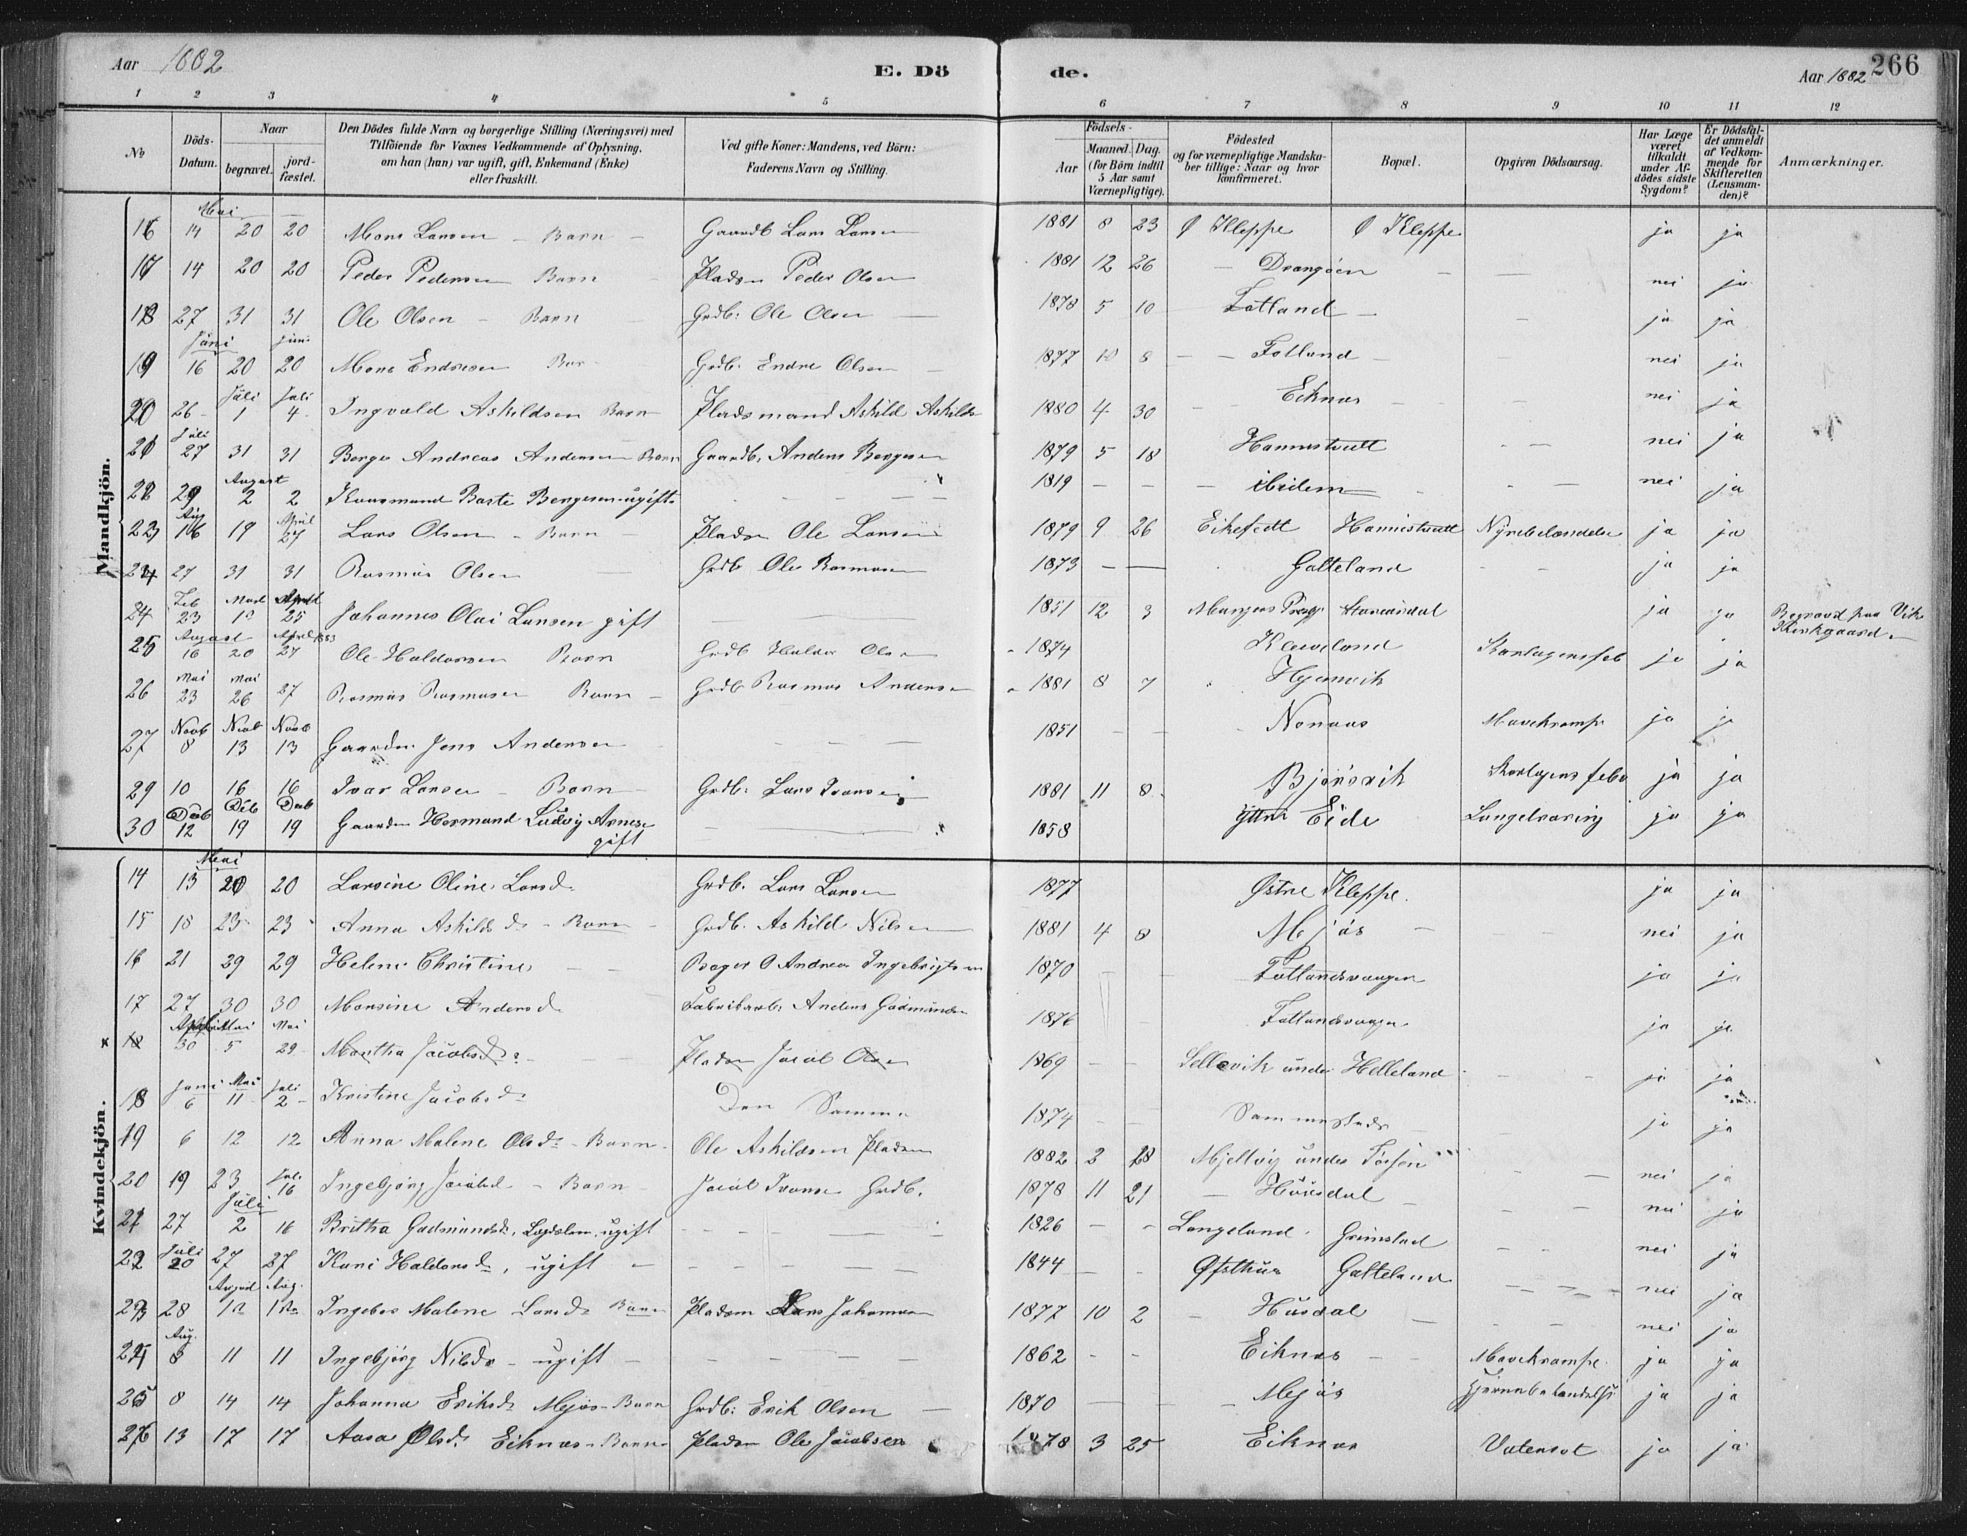 Aar 1882 E. Dö de. Aar 1882 266
1 2 3 4 5 6 7 8 9 10 11 12
No
Döds-Datum.
Naar
begravet.
jord-fæstet.
Den Dödes fulde Navn og borgerlige Stilling (Næringsvei) med
Tilföiende for Voxnes Vedkommende af Oplysning,
om han (hun) var ugift, gift, Enkemand (Enke)
eller fraskilt.
Ved gifte Koner: Mandens, ved Börn:
Faderens Navn og Stilling.
Födsels-
Aar
Maaned. Dag.
(for Börn indtil
5 Aar samt
Værnepligtige).
Födested
og for værnepligtige Mandska-
ber tillige: Naar og hvor
konfirmeret.
Bopæl.
Opgiven Dödsaarsag.
Har Læge
været
tilkaldt
under Af-
dödes sidste
Sygdom?
Er Dödsfal-
det anmeldt
af Vedkom-
mende for
Skifteretten
(Lensman-
den)?
Anmærkninger.
Mandkjön.
Mai
16 14 20 20 Mons Larsen - Barn - Gaardb Lars Larsen 1881 8 23 Ø Kleppe Ø Kleppe ja ja
17 14 20 20 Peder Pedersen Barn Pladsm Peder Olsen 1881 12 26 - Drangöen - - nei ja
18 27 31 31 Ole Olsen - Barn Grdb: Ole Olsen 1878 5 10 Fotland - - ja ja
Juni juni
19 16 20 20 Mons Endresen Bar Grdb. Endre Olsen 1877 10 8 - - Fotland - nei ja
Juli Juli
20 26 1 4 Ingvald Askildsen Barn Pladsmand Askild Askilds 1880 4 30 - - Eiknas - - nei ja
Juli
21 27 31 31 Berge Andreas Andersen Barn Gaardb. Anders Bergesen 1879 5 18 Hannestvedt - - nei ja
August
22 29 2 2 Baste Bergesen ugift - - - 1819 - - - ibidem - - - nei ja
Aug April
23 16 19 27 Lars Olsen - Barn - Pladsm Ole Larsen 1879 9 26 Eikefedt Hannestvedt ja ja
24 27 31 31 Rasmus Olsen Grdb Ole Rasmusen 1873 - - Galteland - - ja ja
Feb Mart April
24 23 18 25 Johannes Olai Larsen gift 1851 12 3 Mangers ja ja Begravd paa Vik
Kirkgaard.
August April 1883
25 16 20 27 Ole Haldorsen Barn Grdb Haldor Olsen 1874 Kaveland ja ja
Mai Mai
26 23 26 27 Rasmus Rasmusen Barn - Grdb Rasmus Andersen 1881 8 7 Hjemvik
Novb Novb Novb
27 8 13 13 Gaardm. Jens Andersen - - - 1851 - - Nonaas Mavekrampe ja j
29 10 16 16 Ivar Larsen - Barn Grdb: Lars Iversen 1881 11 8 Bjørsvik ja ja
Deb Deb Decb
30 12 19 19 Gaardm Hermand Ludvig Arnesen
gift - 1858 Yttre Eide ja ja
Kvindekjön.
Mai
14 13 20 20 Larsine Oline Larsd. Grdb. Lars Larsen 1877 Østre Kleppe. ja ja
15 18 23 23 Anna Askildsd. - Barn Grdb. Askild Nilsen 1881 4 8 Mjøs - - - nei ja
16 21 29 29 Helene Christine - - Bager O Andreas Ingebrigtsen 1870 - - Fotlandsvaagen ja ja
17 27 30 30 Marsine Andersd Fabrikarb. Anders Gudmundsen 1876 - - Fotlandsvaagen ja ja
April Mai Mai
x 18 30 5 29 Martha Jacobsd: - - Pladsm Jacob Olsen 1869 - - Sellevik under Helleland - - ja ja
Juni Mai Juli
18 6 11 2 Kristine Jacobsd. Den Samme 1874 - - Sammesteds - ja ja
19 6 12 12 Anna Malene Olsd. - Barn - Ole Askildsen Pladsm 1882 2 28 Mjelvig under - - nei ja
Juli
20 19 23 16 Ingebjørg Jacobsd - Barn Jacob Ivarsen Grdb. 1878 11 21 - Huusdal - - - nei ja
Juli
21 27 2 16 Brittha Gudmundsd., Lægdslem, ugift - - - 1826 - - Langeland Grimstad - - nei ja
Juli
22 20 27 27 Kari Haldorsd., ugift - - - - 1844 - - Øfsthus Galteland - - - nei ja
August Aug.
23 28 Malene Larsd. Barn Pladsm Lars Johannesen 1877 10 2 - Husdal - - - nei ja
Aug.
24 8 11 11 Ingebjørg Nilsd. - ugift - - - - - 1862 - - Eiknas - - Mavekrampe. ja ja
25 8 14 14 Johanna Eriksd. Mjøs - Barn Grdb: Erik Olsen 1870 - - Mjøs ja ja
26 13 17 17 Aasa Olsd. Eiknas - Barn Pladsm Ole Jacobsen 1878 3 25 Eiknas Vatersot ja ja